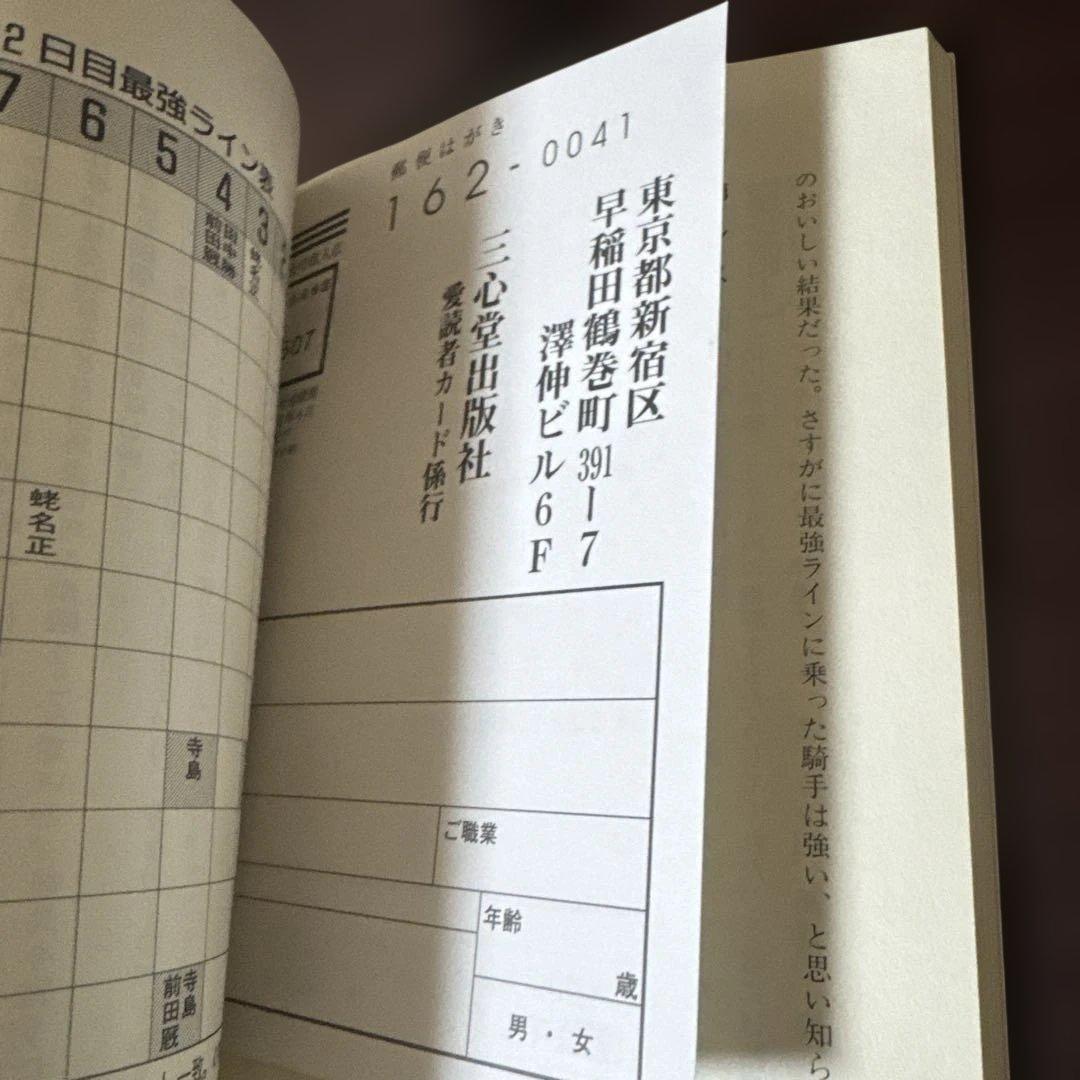 2日目最強ライン表
7
6
5
4
3
前田厩
蛯名正
蛯名正
寺島
寺島
前田厩
郵便はがき
162-0041
東京都新宿区
早稲田鶴巻町391ー7
澤伸ビル6F
三心堂出版社
愛読者カード係行
ご職業
年齢
歳
男・女
のおいしい結果だった。さすがに最強ラインに乗った騎手は強い、と思い知ら